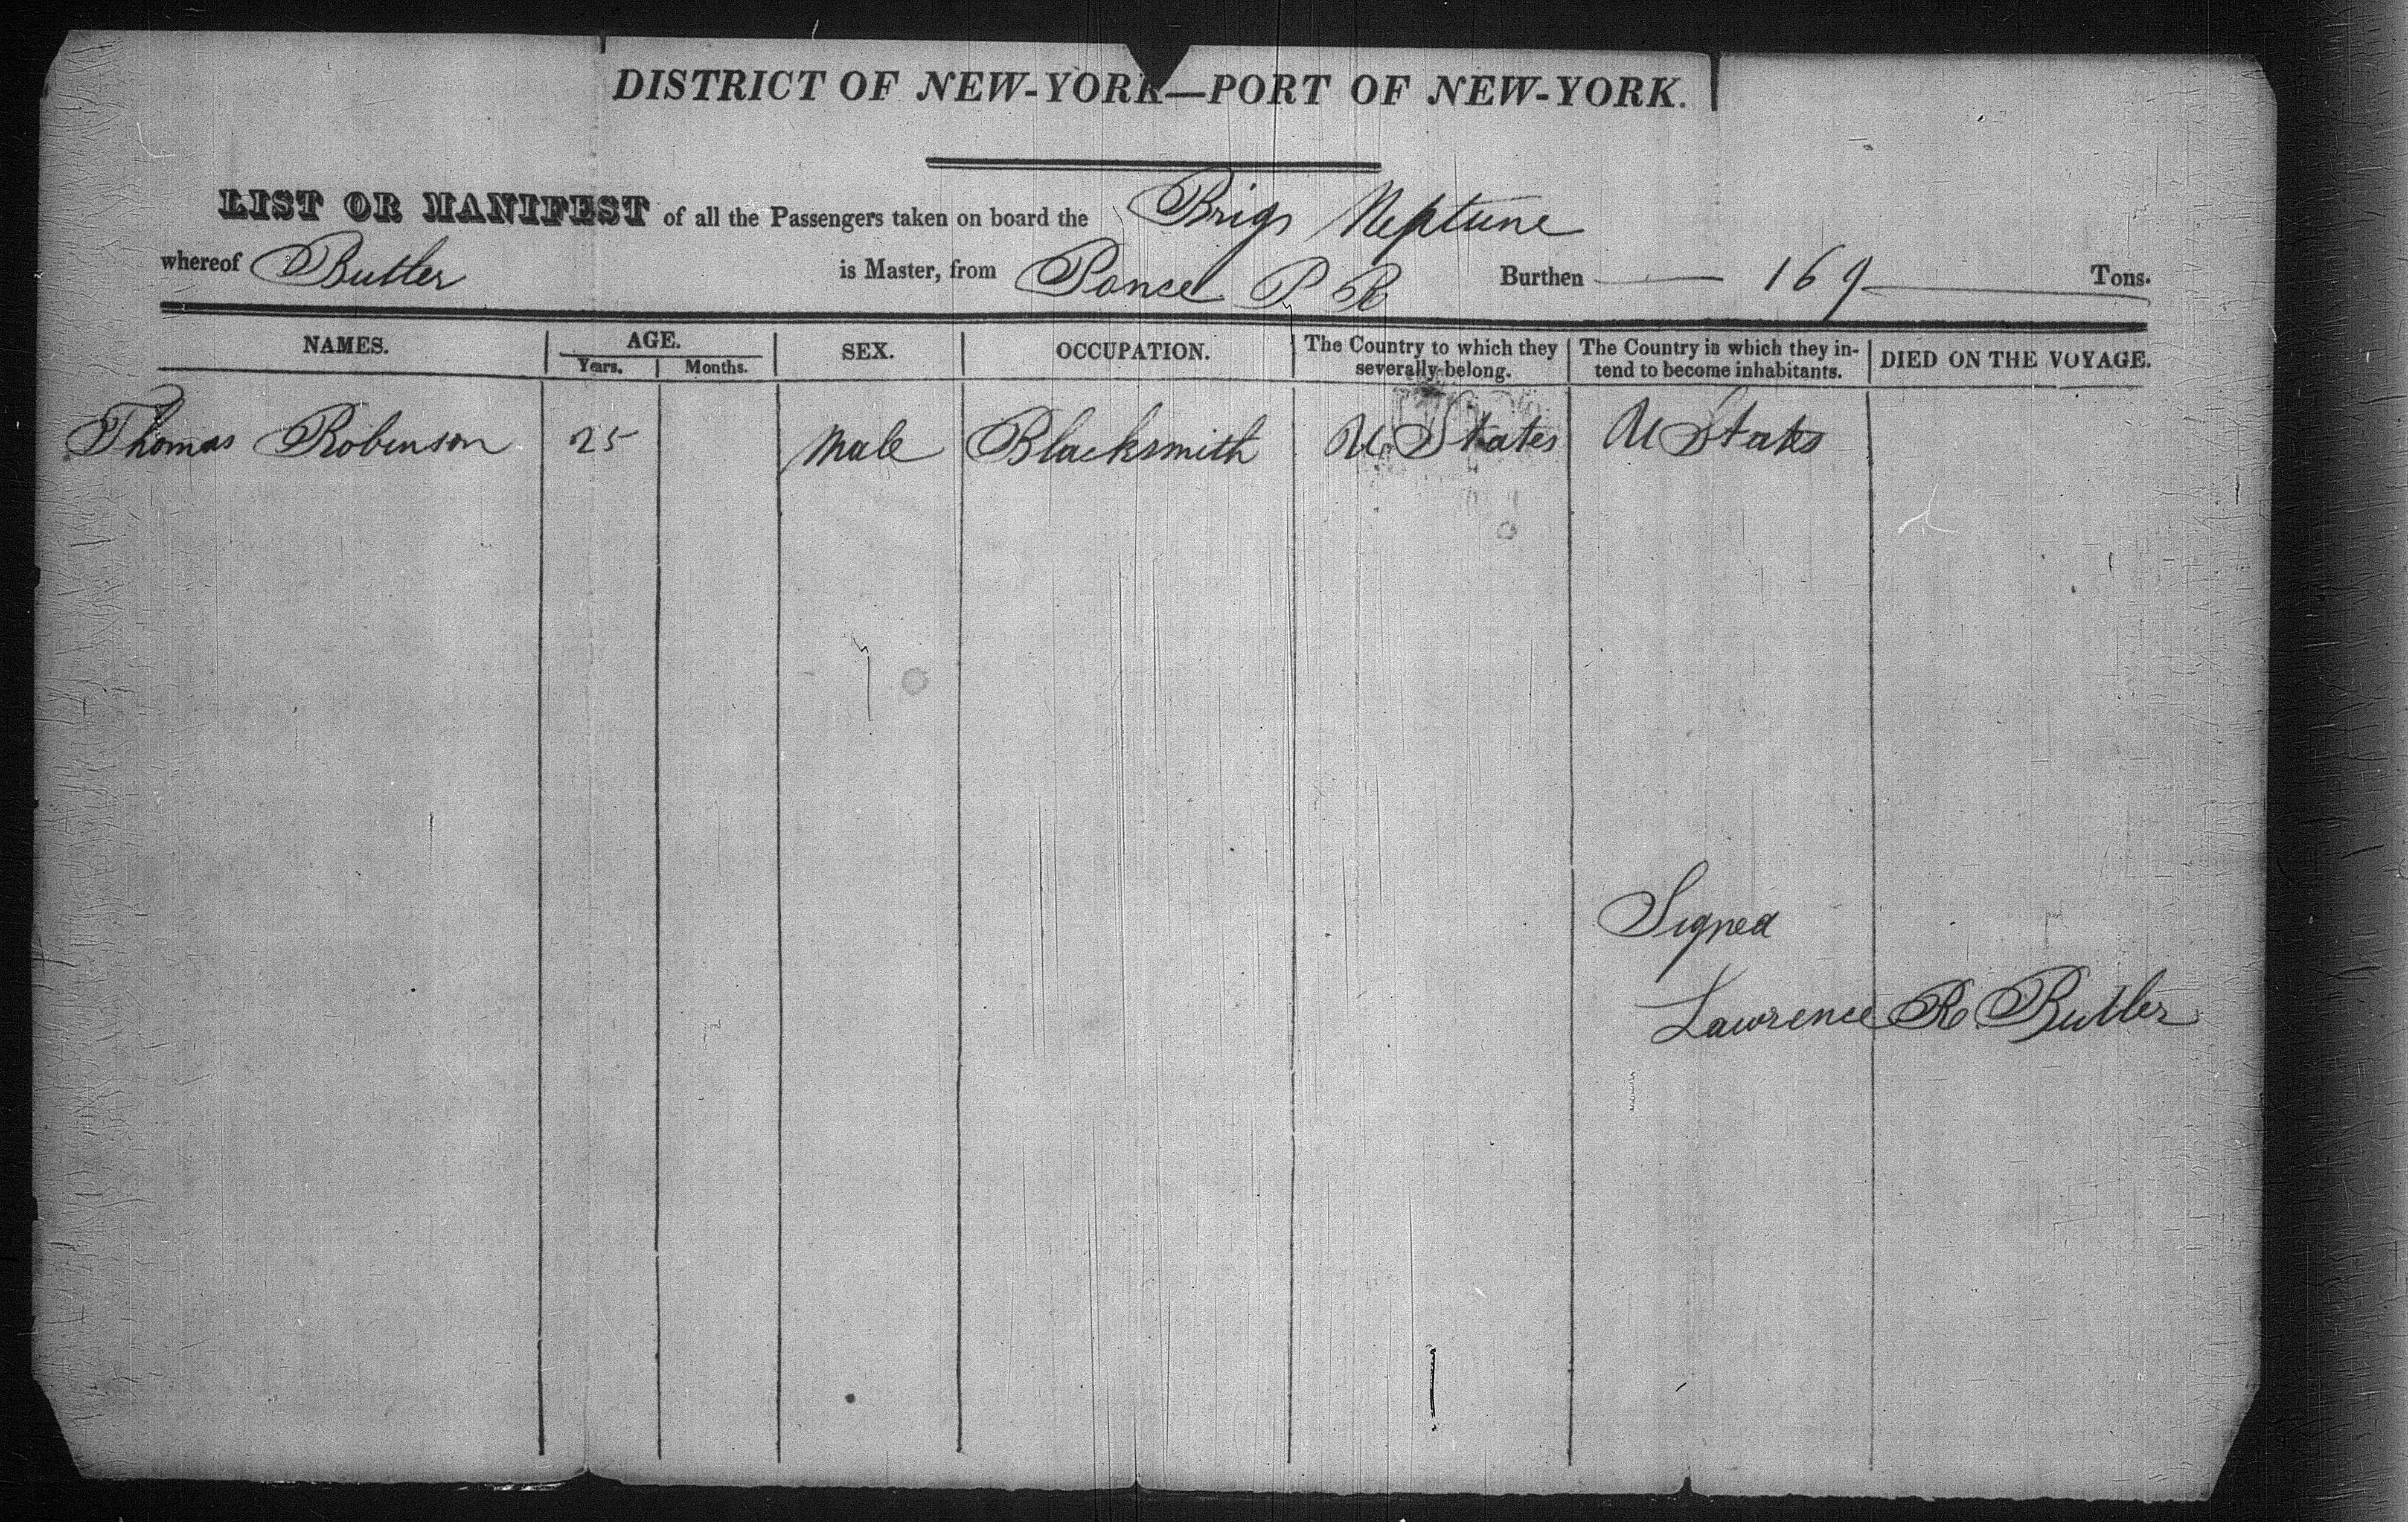 DISTRICT OF NEW-YORK—PORT OF NEW-YORK.
LIST OR MANIFEST of all the Passengers taken on board the Brig Neptune
whereof Butler is Master, from Ponce P R Burthen 169 Tons.
NAMES. AGE. Years. Months. SEX. OCCUPATION. The Country to which they severally belong. The Country in which they intend to become inhabitants. DIED ON THE VOYAGE.
Thomas Robinson 25 Male Blacksmith U States U States
Signed
Lawrence R Butler